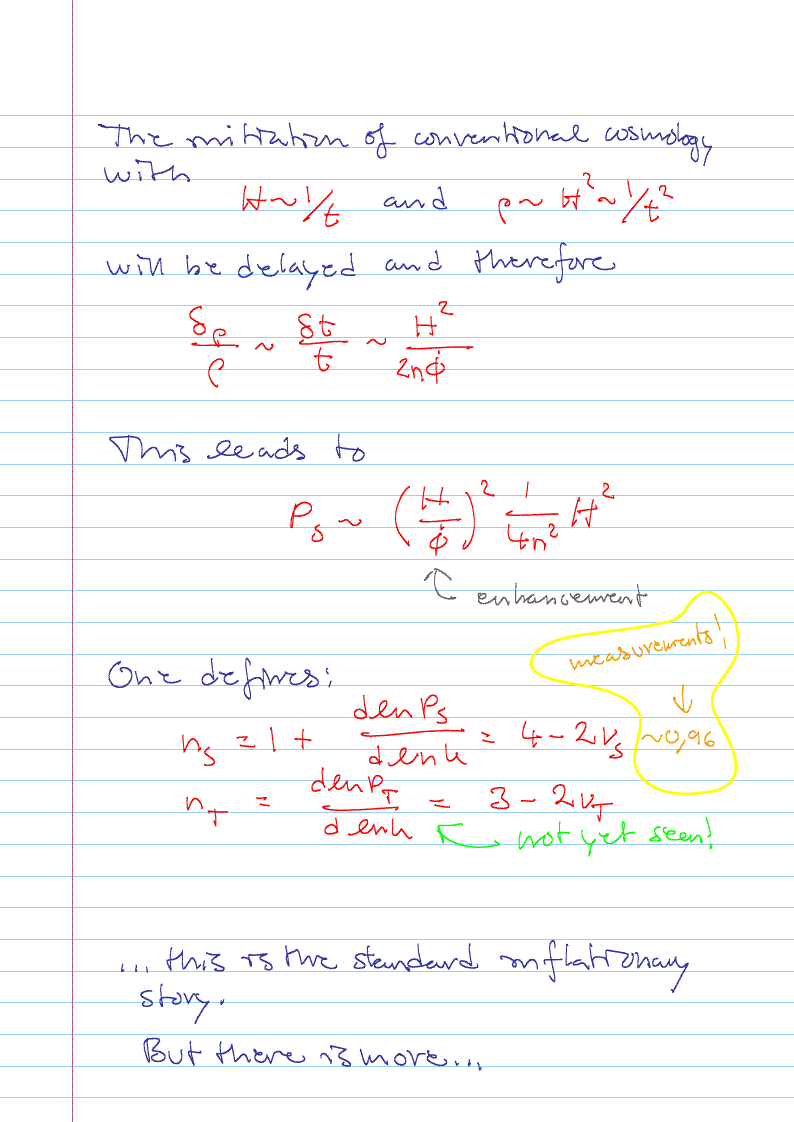 The initiation of conventional cosmology
with
H ~ 1/t and ρ ~ H² ~ 1/t²
will be delayed and therefore
δρ/ρ ~ δt/t ~ H²/2πφ̇
This leads to
P_S ~ (H/φ̇)² 1/4π² H²
enhancement
measurements!
One defines:
n_S = 1 + dlnP_S/dlnk = 4 - 2ν_S ~0,96
n_T = dlnP_T/dlnk = 3 - 2ν_T
not yet seen!
... this is the standard inflationary
story.
But there is more...